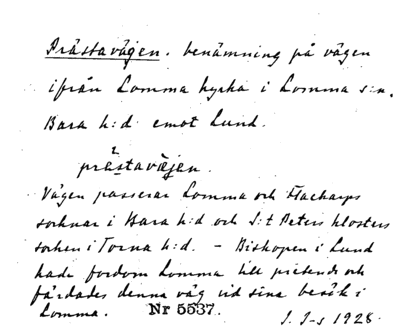 Prästavägen. benämning på vägen
ifrån Lomma kyrka i Lomma s:n.
Bara h:d emot Lund.
prästavæjen.
Vägen passerar Lomma och Flackarps
socknar i Bara h:d och S:t Peters klosters
socken i Torna h:d. - Biskopen i Lund
hade fordom Lomma till prebende och
färdades denna väg vid sina besök i
Lomma. Nr 5537.
J. J-s 1928.